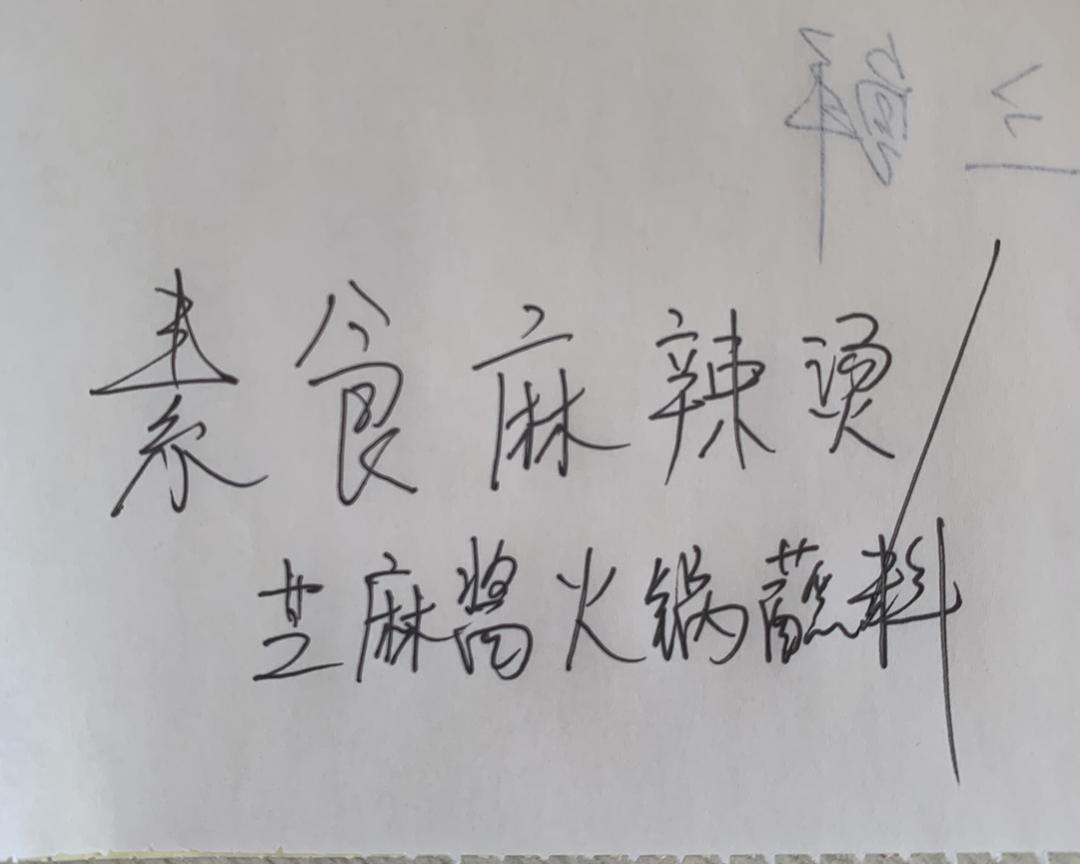 素食麻辣烫
芝麻酱火锅蘸料